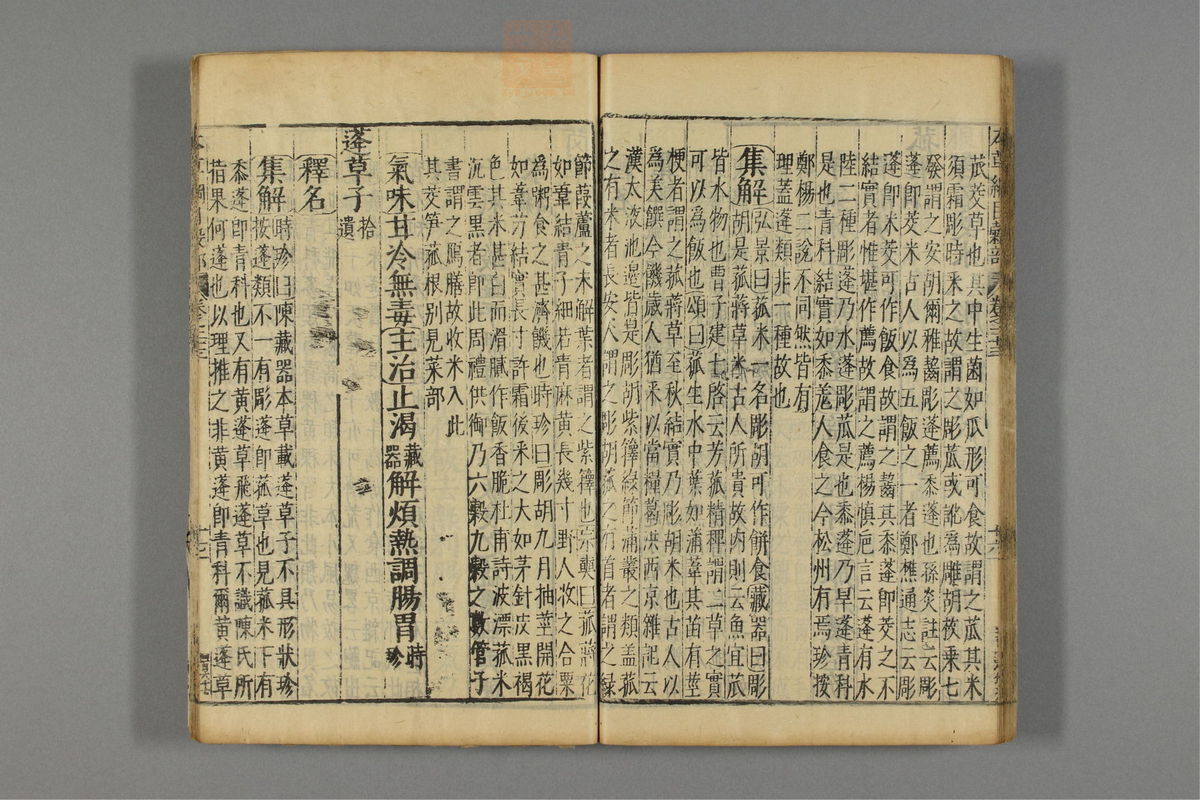 苽茭草也其中生菌如瓜形可食故謂之苽其米
須霜彫時采之故謂之彫苽或訛為雕胡枚乘七
發謂之安胡爾雅齧彫蓬薦黍蓬也孫炎註云彫
蓬即茭米古人以為五飯之一者鄭樵通志云彫
蓬即米茭可作飯食故謂之齧其黍蓬即茭之不
結實者惟堪作薦故謂之薦楊慎巵言云蓬有水
陸二種彫蓬乃水蓬彫苽是也黍蓬乃旱蓬青科
是也青科結實如黍羗人食之今松州有焉珍按
鄭楊二說不同然皆有
理蓋蓬類非一種故也
集解弘景曰菰米一名彫胡可作餅食藏器曰彫
胡是菰蔣草米古人所貴故內則云魚宜苽
皆水物也曹子建七啓云芳菰精稗謂二草之實
可以為飯也頌曰菰生水中葉如蒲葦其苗有莖
梗者謂之菰蔣草至秋結實乃彫胡米也古人以
為美饌今饑歲人猶采以當糧葛洪西京雜記云
漢太液池邊皆是彫胡紫籜綠節蒲叢之類盖菰
之有米者長安人謂之彫胡菰之有首者謂之綠
節葭蘆之未解葉者謂之紫籜也宗奭曰菰蔣花
如葦結青子細若青麻黃長幾寸野人收之合粟
為粥食之甚濟饑也時珍曰彫胡九月抽莖開花
如葦芍結實長寸許霜後采之大如茅針皮黑褐
色其米甚白而滑膩作飯香脆杜甫詩波漂菰米
沉雲黑者即此周禮供御乃六穀九穀之數管子
書謂之鴈膳故收米入此
其茭笋菰根別見菜部
氣味甘冷無毒主治止渴藏器解煩熱調腸胃時珍
蓬草子拾遺
釋名
集解時珍曰陳藏器本草載蓬草子不具形狀珍
按蓬類不一有彫蓬即菰草也見菰米下有
黍蓬即青科也又有黃蓬草飛蓬草不識陳氏所
指果何蓬也以理推之非黃蓬即青科爾黃蓬草